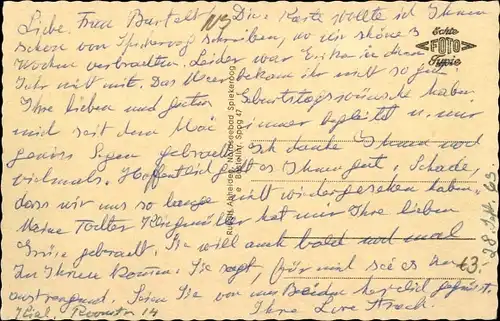 Liebe Frau Bartelt! Die Karte wollte ich Ihnen
schon von Spiekeroog schreiben, wo wir schöne 3
Wochen verbrachten. Leider war Erika in diesem
Jahr nicht mit. Das Meer bekam ihr nicht so gut.
Ihre lieben und guten Geburtstagswünsche haben
mich seit dem Mai immer begleitet u. mir
gewiss Segen gebracht. Ich danke Ihnen noch
vielmals. Hoffentlich geht es Ihnen gut. Schade,
dass wir uns so lange nicht wiedergesehen haben.
Meine Tochter hat mir Ihre lieben
Grüße gebracht. Sie will auch bald noch mal
zu Ihnen kommen. Sie sagt, für mich sei es zu
anstrengend. Seien Sie von uns Beiden herzlich gegrüßt.
Kiel, Roonstr. 14 Ihre
Echte
FOTO
Typie
Nordseebad Spiekeroog
63.